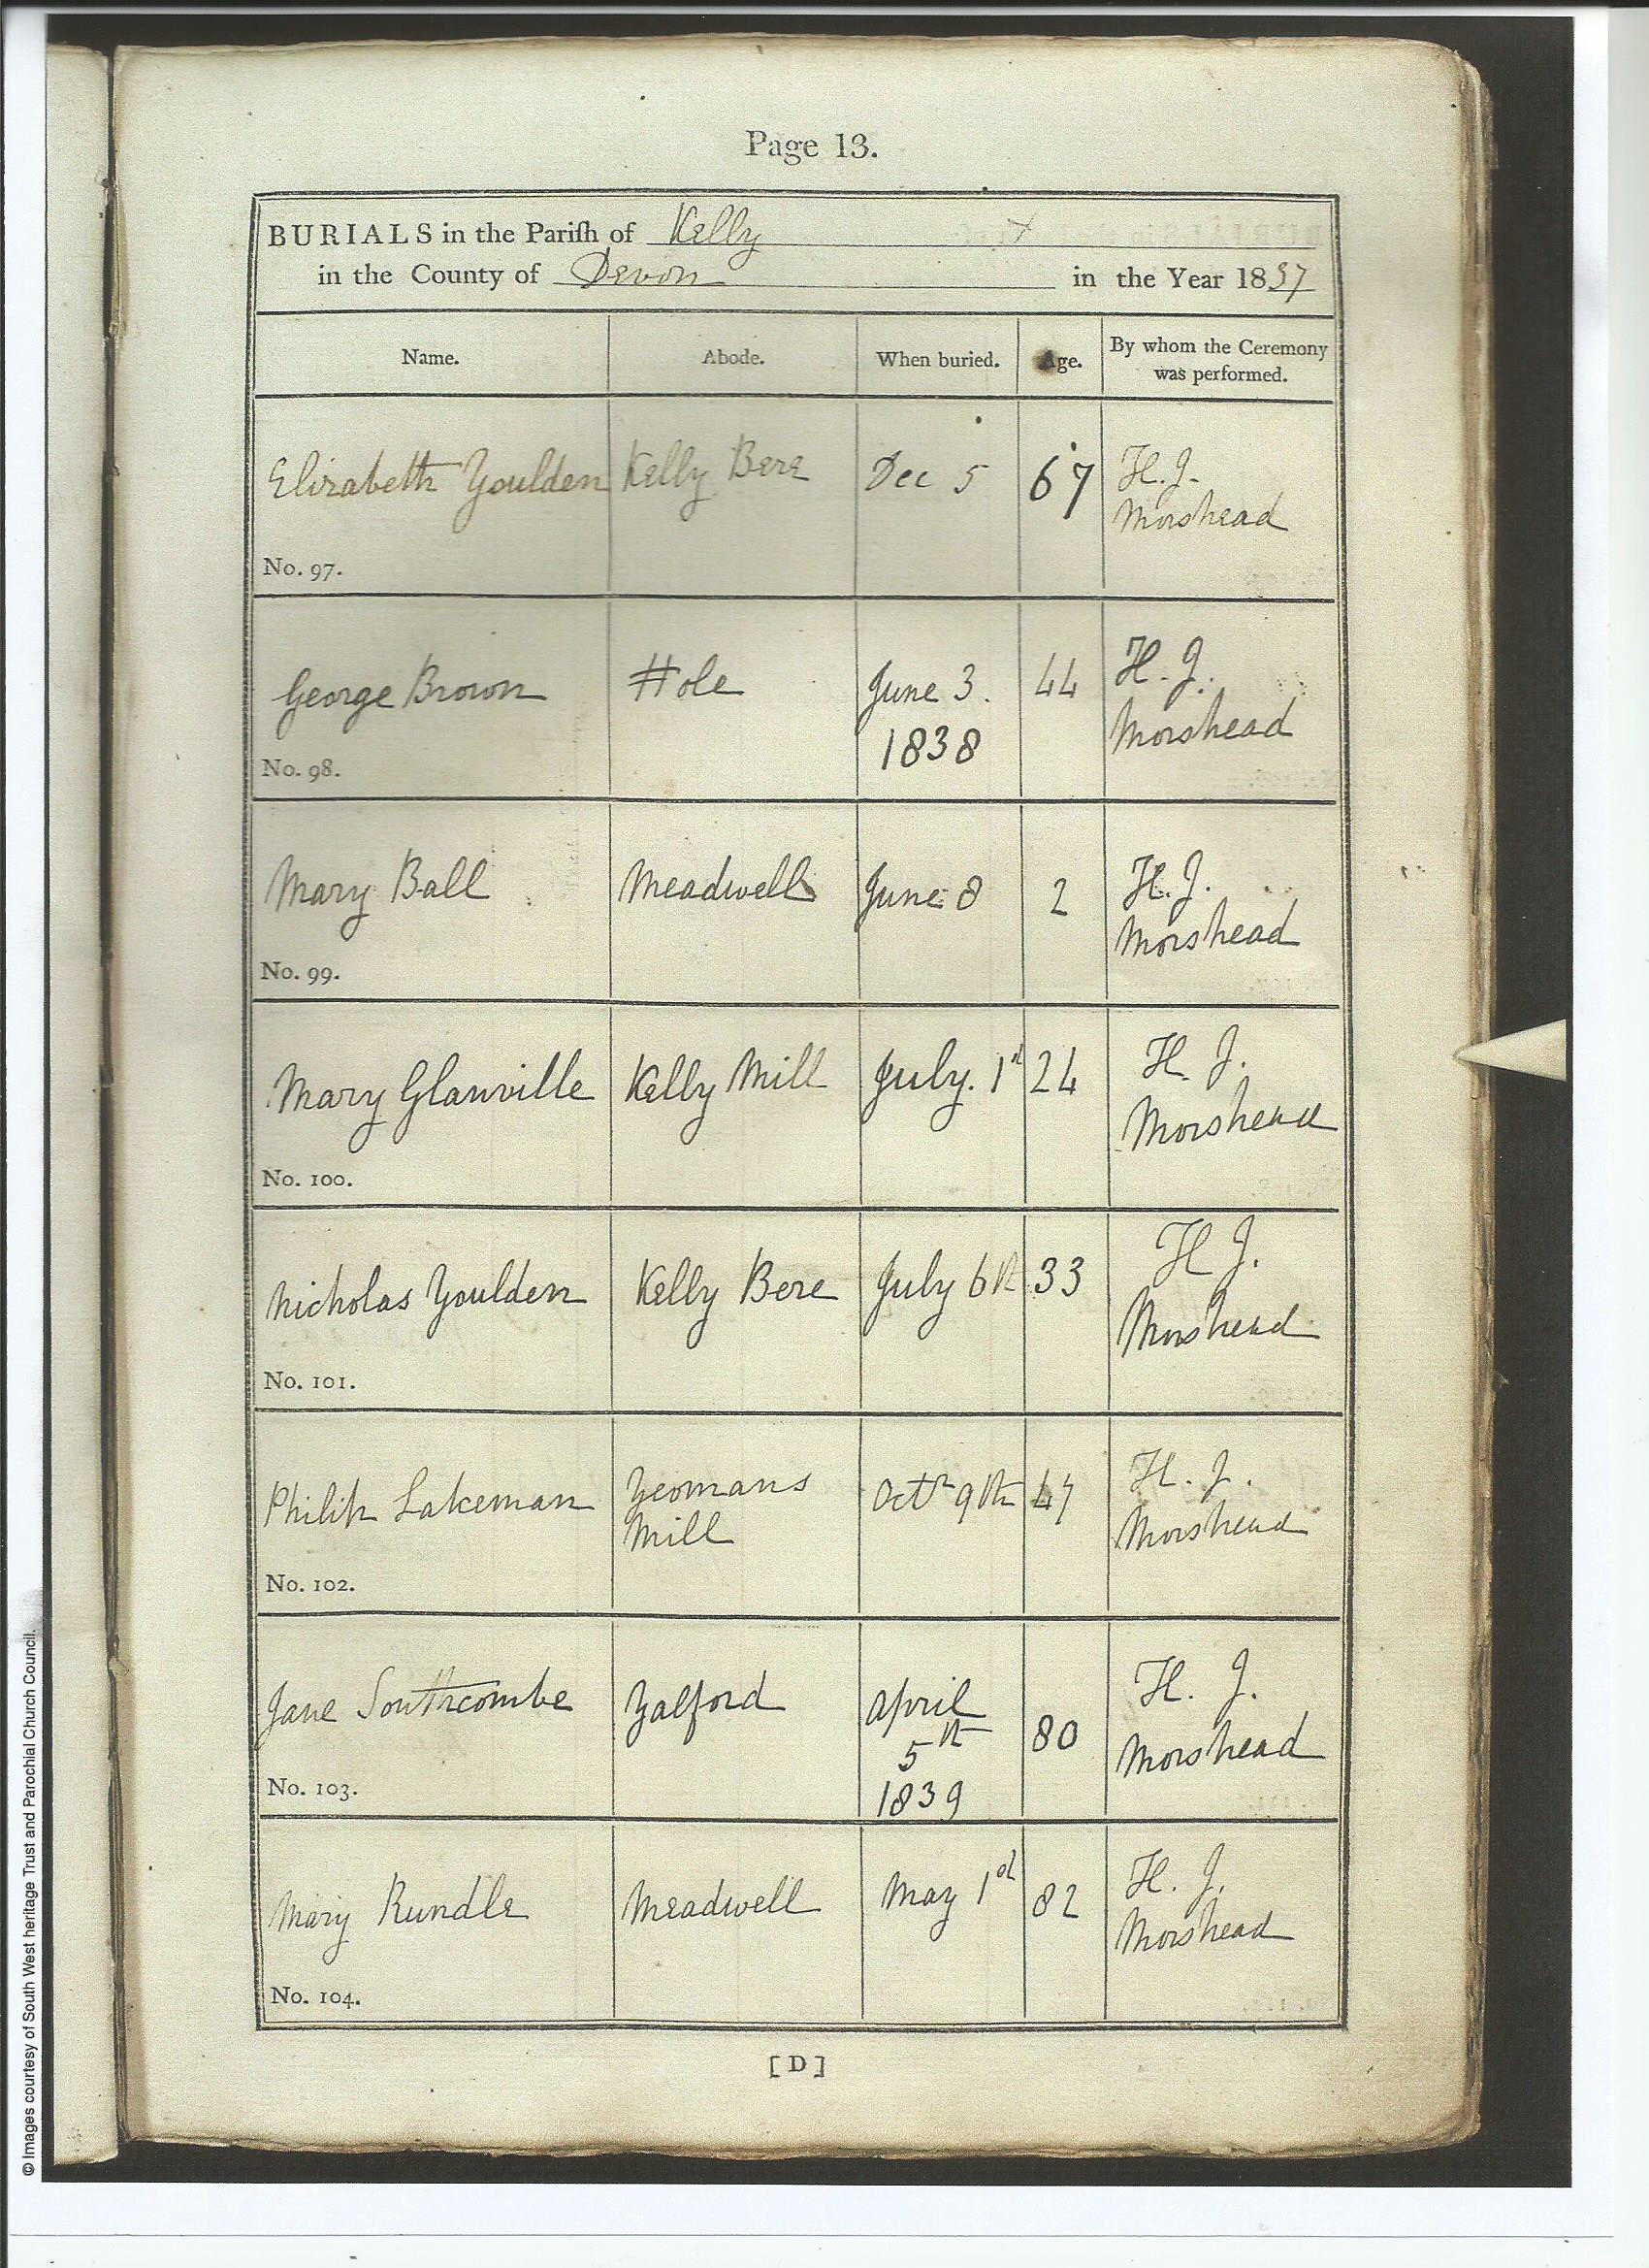 Page 13.
BURIALS in the Pariſh of Kelly
in the County of Devon in the Year 1837
Name. Abode. When buried. Age. By whom the Ceremony was performed.
Elizabeth Youlden Kelly Bere Dec 5 67 H. J. Morshead
No. 97.
George Brown Hole June 3. 1838 44 H. J. Morshead
No. 98.
Mary Ball Meadwell June 8 2 H. J. Morshead
No. 99.
Mary Glanville Kelly Mill July. 1st 24 H. J. Morshead
No. 100.
Nicholas Youlden Kelly Bere July 6th 33 H J. Morshead
No. 101.
Philip Lakeman Yeomans Mill Octr 9th 47 H. J. Morshead
No. 102.
Jane Southcombe Yalford April 5th 1839 80 H. J. Morshead
No. 103.
Mary Rundle Meadwell May 1st 82 H. J. Morshead
No. 104.
[D]
© Images courtesy of South West heritage Trust and Parochial Church Council.